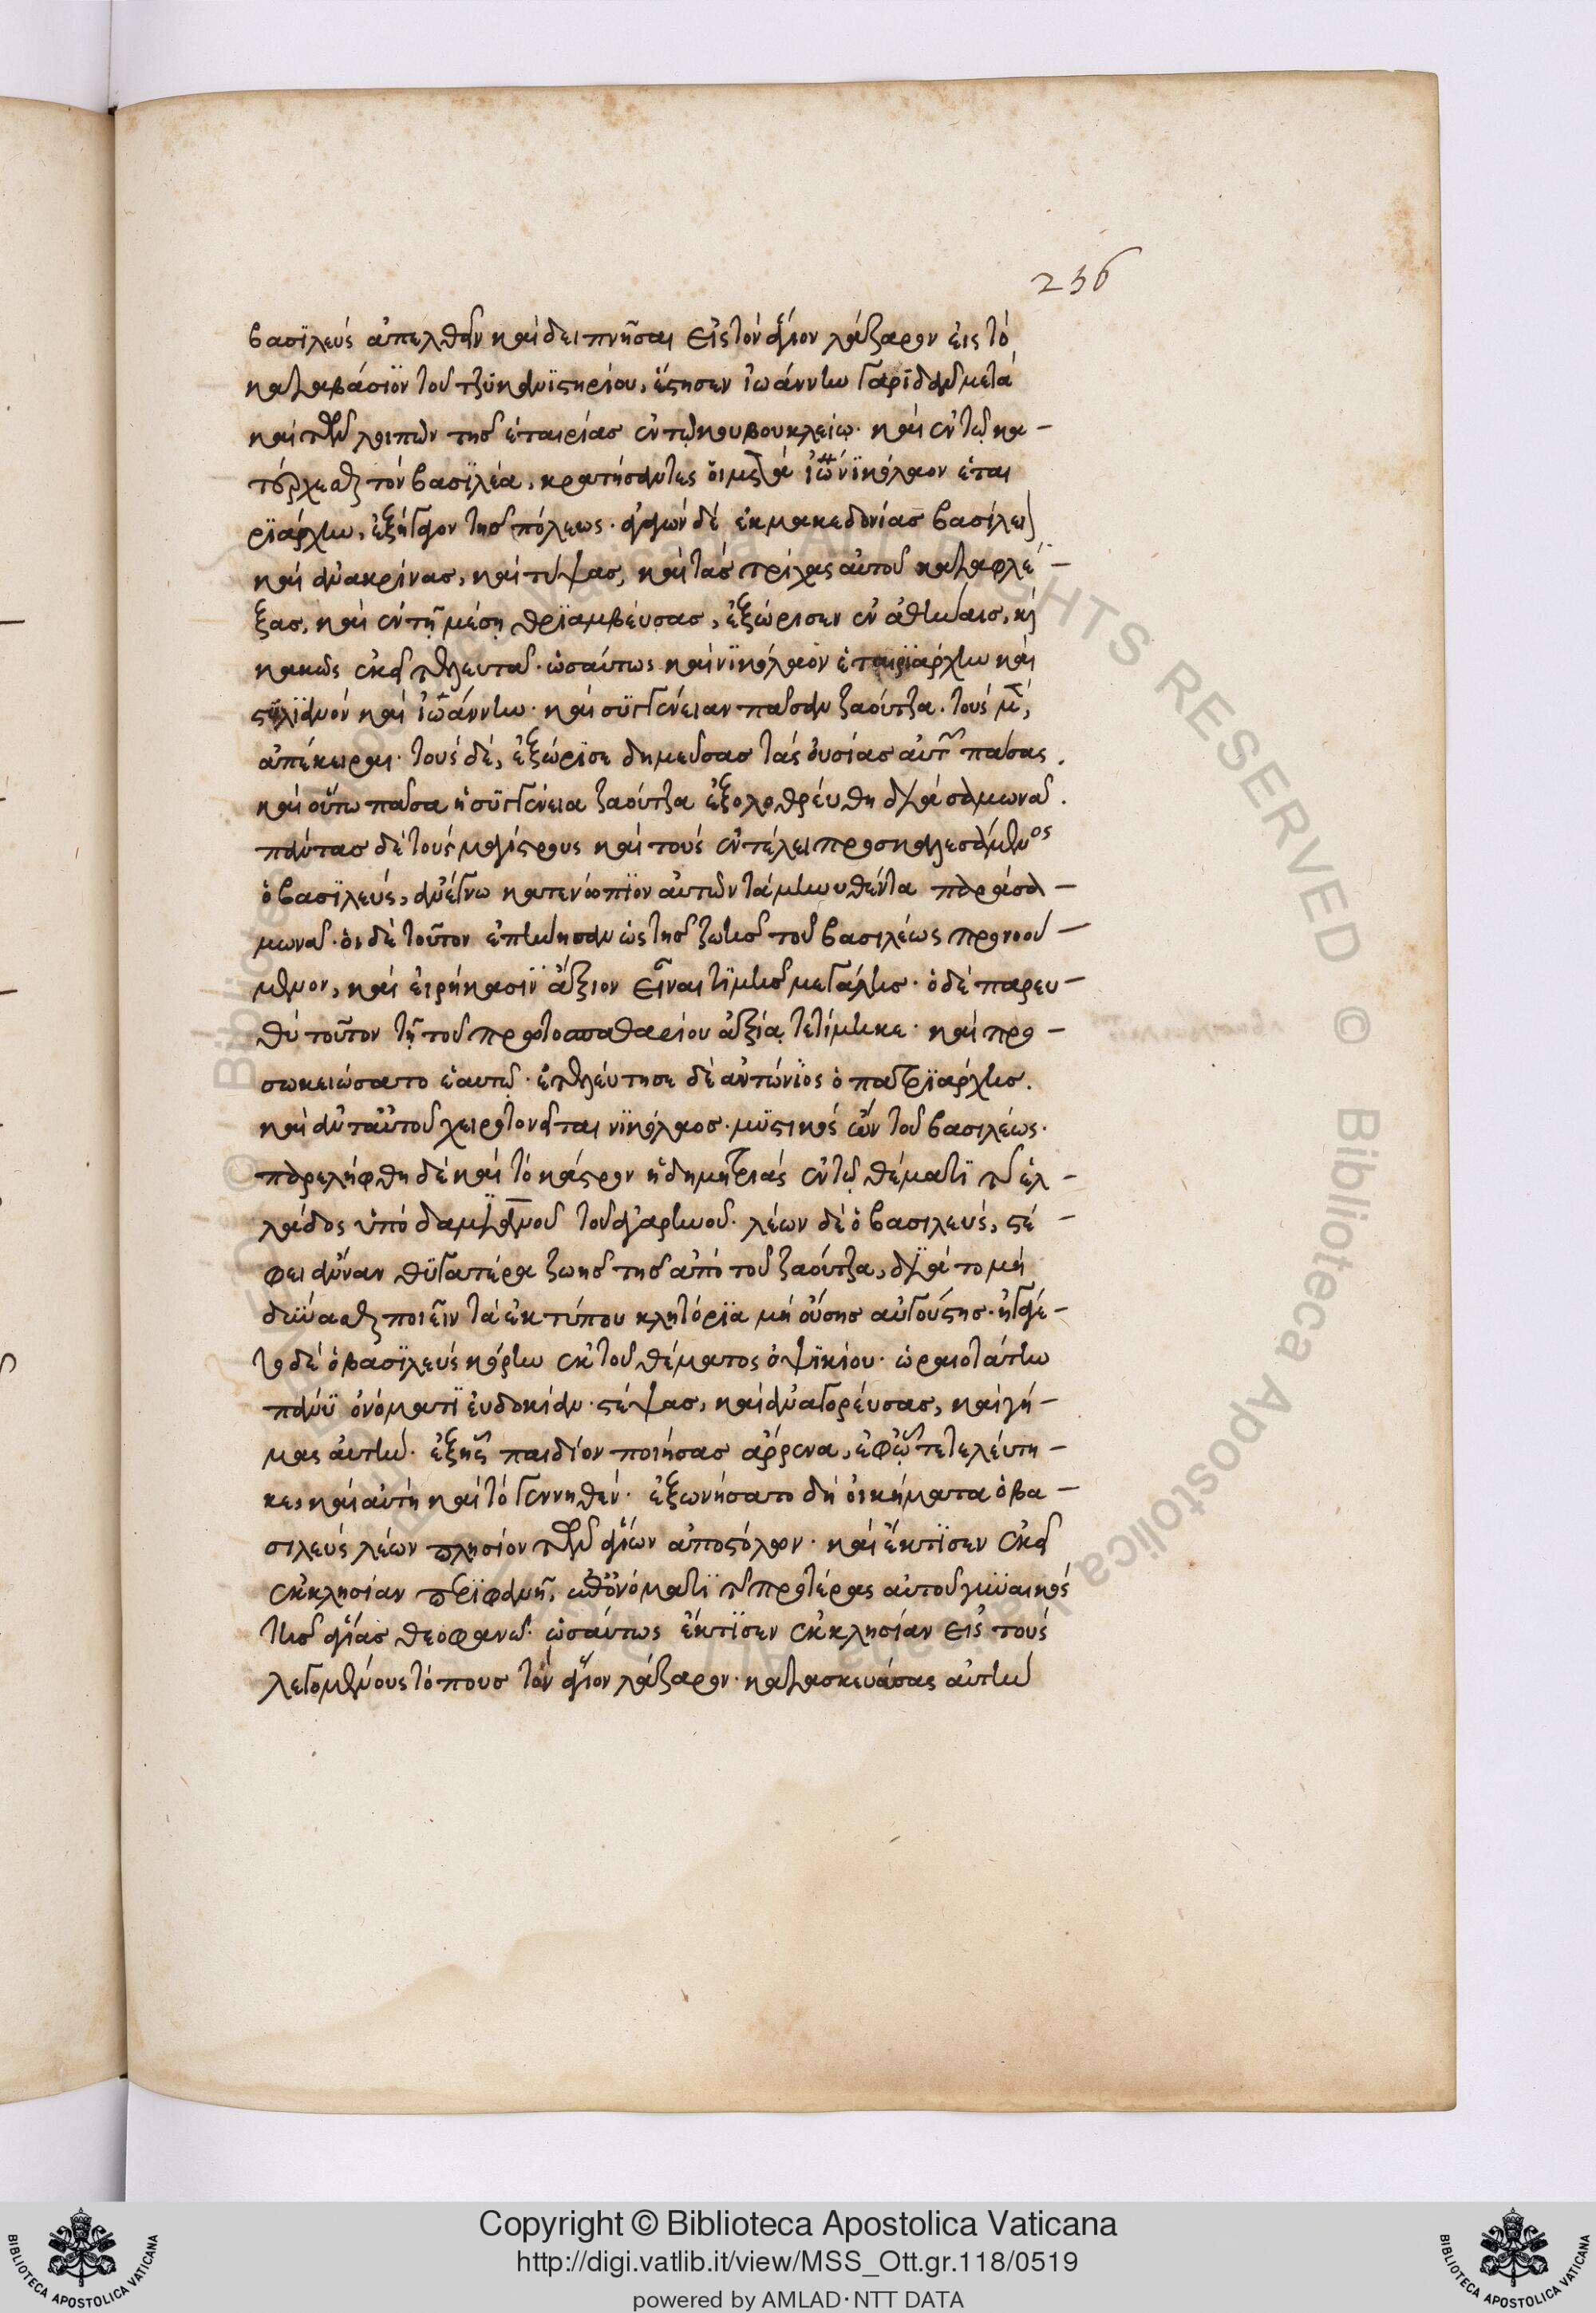 236
βασϊλεύς ἀπελθεῖν καὶ δειπνῆσαι εἰς τὸν ἅγιον λάζαρον εἰς τὸ
καταβάσιον τοῦ τζϋκανϊστηρίου, ἔστησεν ἰωάννην γαρϊδὰν μετὰ
καὶ τῶν λοιπῶν τῆς ἑταιρίας ἐν τῷ κουβουκλείῳ· καὶ ἐν τῷ κα-
τέρχεσθαι τὸν βασϊλέα, κρατήσαντες οἱ μετὰ ἰωάννου νϊκόλαον ἑται
ρϊάρχην, ἐξήγαγον τῆς πόλεως· ἀγαγὼν δὲ ἐκ μακεδονίας βασίλει
καὶ ἀνακρίνας, καὶ τύψας, καὶ τὰς τρίχας αὐτοῦ καταφλέ-
ξας, καὶ ἐν τῇ μέσῃ θρϊαμβεύσας, ἐξώρισεν ἐν ἀθήναις, κ
κακῶς ἐκεῖ τελευτᾶ· ὡσαύτως καὶ νϊκόλαον ἑταιρϊάρχην καὶ
στϋλϊανὸν καὶ ἰωάννην· καὶ συγγένειαν πᾶσαν ζαούτζα· τοὺς μὲν,
ἀπέκειραι· τοὺς δὲ, ἐξώρϊσε δημεύσας τὰς οὐσίας αὐτῶν πάσας.
καὶ οὕτω πᾶσα ἡ συγγένεια ζαούτζα ἐξολοθρεύθη διὰ σαμωνᾶ.
πάντας δὲ τοὺς μαγίστρους καὶ τοὺς ἐν τέλει προσκαλεσάμενος
ὁ βασϊλεύς, ἀνέγνω κατενώπϊον αὐτῶν τὰ μηνυθέντα παρὰ σα-
μωνᾶ· οἱ δὲ τοῦτον ἐπήνησαν ὡς τῆς ζωῆς τοῦ βασιλέως προνοού-
μενον, καὶ εἰρήκασϊν ἄξιον εἶναι τϊμῆς μεγάλης· ὁ δὲ παρευ-
θὺ τοῦτον τῇ τοῦ πρωτοσπαθαρίου ἀξίᾳ τετίμηκε· καὶ προ-
σωκειώσατο ἑαυτῷ· ἐτελεύτησε δὲ ἀντώνϊος ὁ πατρϊάρχης.
καὶ ἀντ' αὐτοῦ χειροτονεῖται νϊκόλαος· μϋστικὸς ὢν τοῦ βασιλέως·
παρελήφθη δὲ καὶ τὸ κάστρον ἡ δημητριὰς ἐν τῷ θέματϊ τῆς ἑλ-
λάδος ὑπὸ δαμιανοῦ τοῦ ἀγαρηνοῦ· λέων δὲ ὁ βασιλεύς, στέ-
φει ἄνναν θϋγατέρα ζωῆς τῆς ἀπὸ τοῦ ζαούτζα, διὰ τὸ μὴ
δύνασθαι ποιεῖν τὰ ἐκ τύπου κλητόρϊα μὴ οὔσης αὐγούστης· ἠγάγε-
το δὲ ὁ βασϊλεύς κόρην ἐκ τοῦ θέματος ὀψϊκίου· ὡραιοτάτην
πάνϋ ὀνόματϊ εὐδοκίαν· στέψας, καὶ ἀναγορεύσας, καὶ γή-
μας αὐτήν· ἐξ ἧς παιδίον ποιήσας ἄρρενα, ἐφ' ᾧ τετελεύτη-
κε, καὶ αὐτὴ καὶ τὸ γεννηθέν· ἐξωνήσατο δὴ οἰκήματα ὁ βα-
σιλεύς λέων πλησίον τῶν ἁγίων ἀποστόλων· καὶ ἔκτϊσεν ἐκεῖ
ἐκκλησίαν περϊφανῆ, ἐπ' ὀνόματϊ τῆς προτέρας αὐτοῦ γυναικὸς
τῆς ἁγίας θεοφανοῦς· ὡσαύτως ἔκτϊσεν ἐκκλησίαν εἰς τοὺς
λεγομένους τόπους τὸν ἅγιον λάζαρον· κατασκευάσας αὐτὴν
Copyright © Biblioteca Apostolica Vaticana
http://digi.vatlib.it/view/MSS_Ott.gr.118/0519
powered by AMLAD·NTT DATA